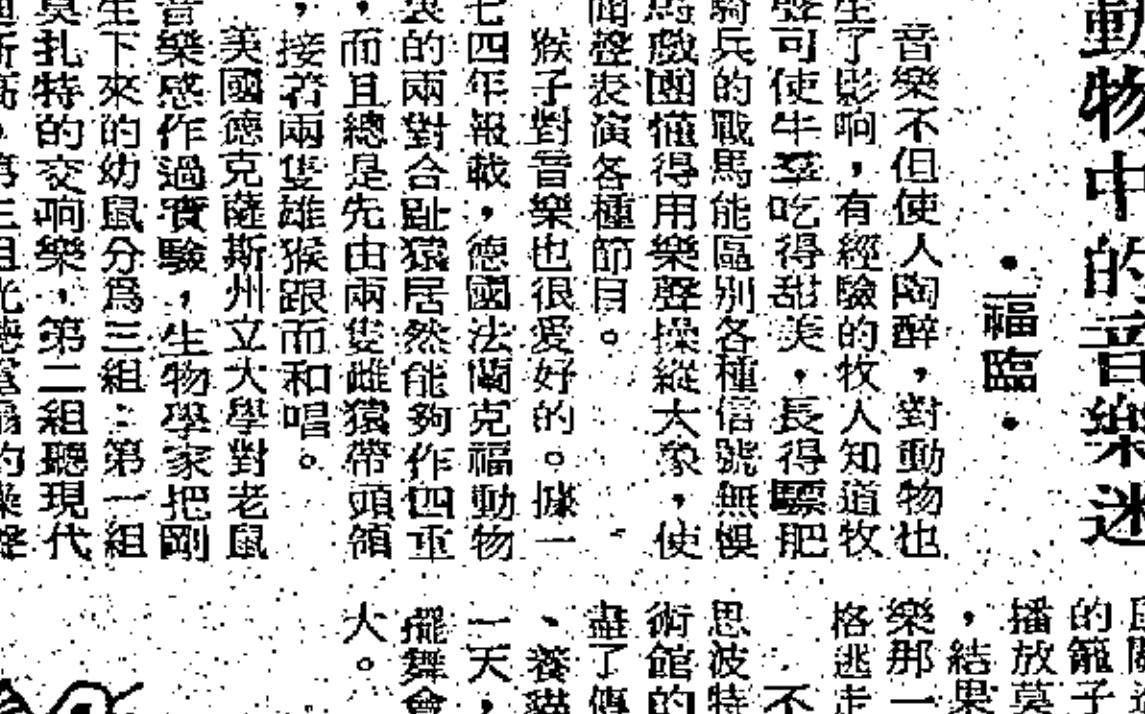 動物中的音樂迷
·福臨·
音樂不但使人陶醉，對動物也
生了影响，有經驗的牧人知道牧
聲可使牛羣吃得甜美，長得驃肥
騎兵的戰馬能區別各種信號無悞
馬戲團懂得用樂聲操縱大象，使
聲表演各種節目。
猴子對音樂也很愛好的。據一
七四年報載，德國法蘭克福動物
的兩對合趾猿居然能夠作四重
，而且總是先由兩隻雌猿帶頭領
，接着兩隻雄猴跟而和唱。
美國德克薩斯州立大學對老鼠
音樂感作過實驗，生物學家把剛
生下來的幼鼠分爲三組：第一組
莫扎特的交响樂，第二組聽現代
的籠子
播放
，結果
樂那一
格逃走
不
思波特
術館的
盡了傳
、養貓
一天，
擺舞會
大。